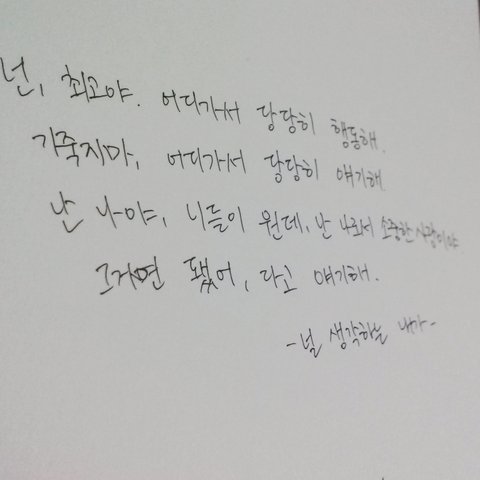 넌, 최고야. 어디가서 당당히 행동해.
기죽지마, 어디가서 당당히 얘기해.
난 나야, 니들이 뭔데, 난 나로서 소중한 사람이야
그거면 됐어, 라고 얘기해.
-널 생각하는 내가-